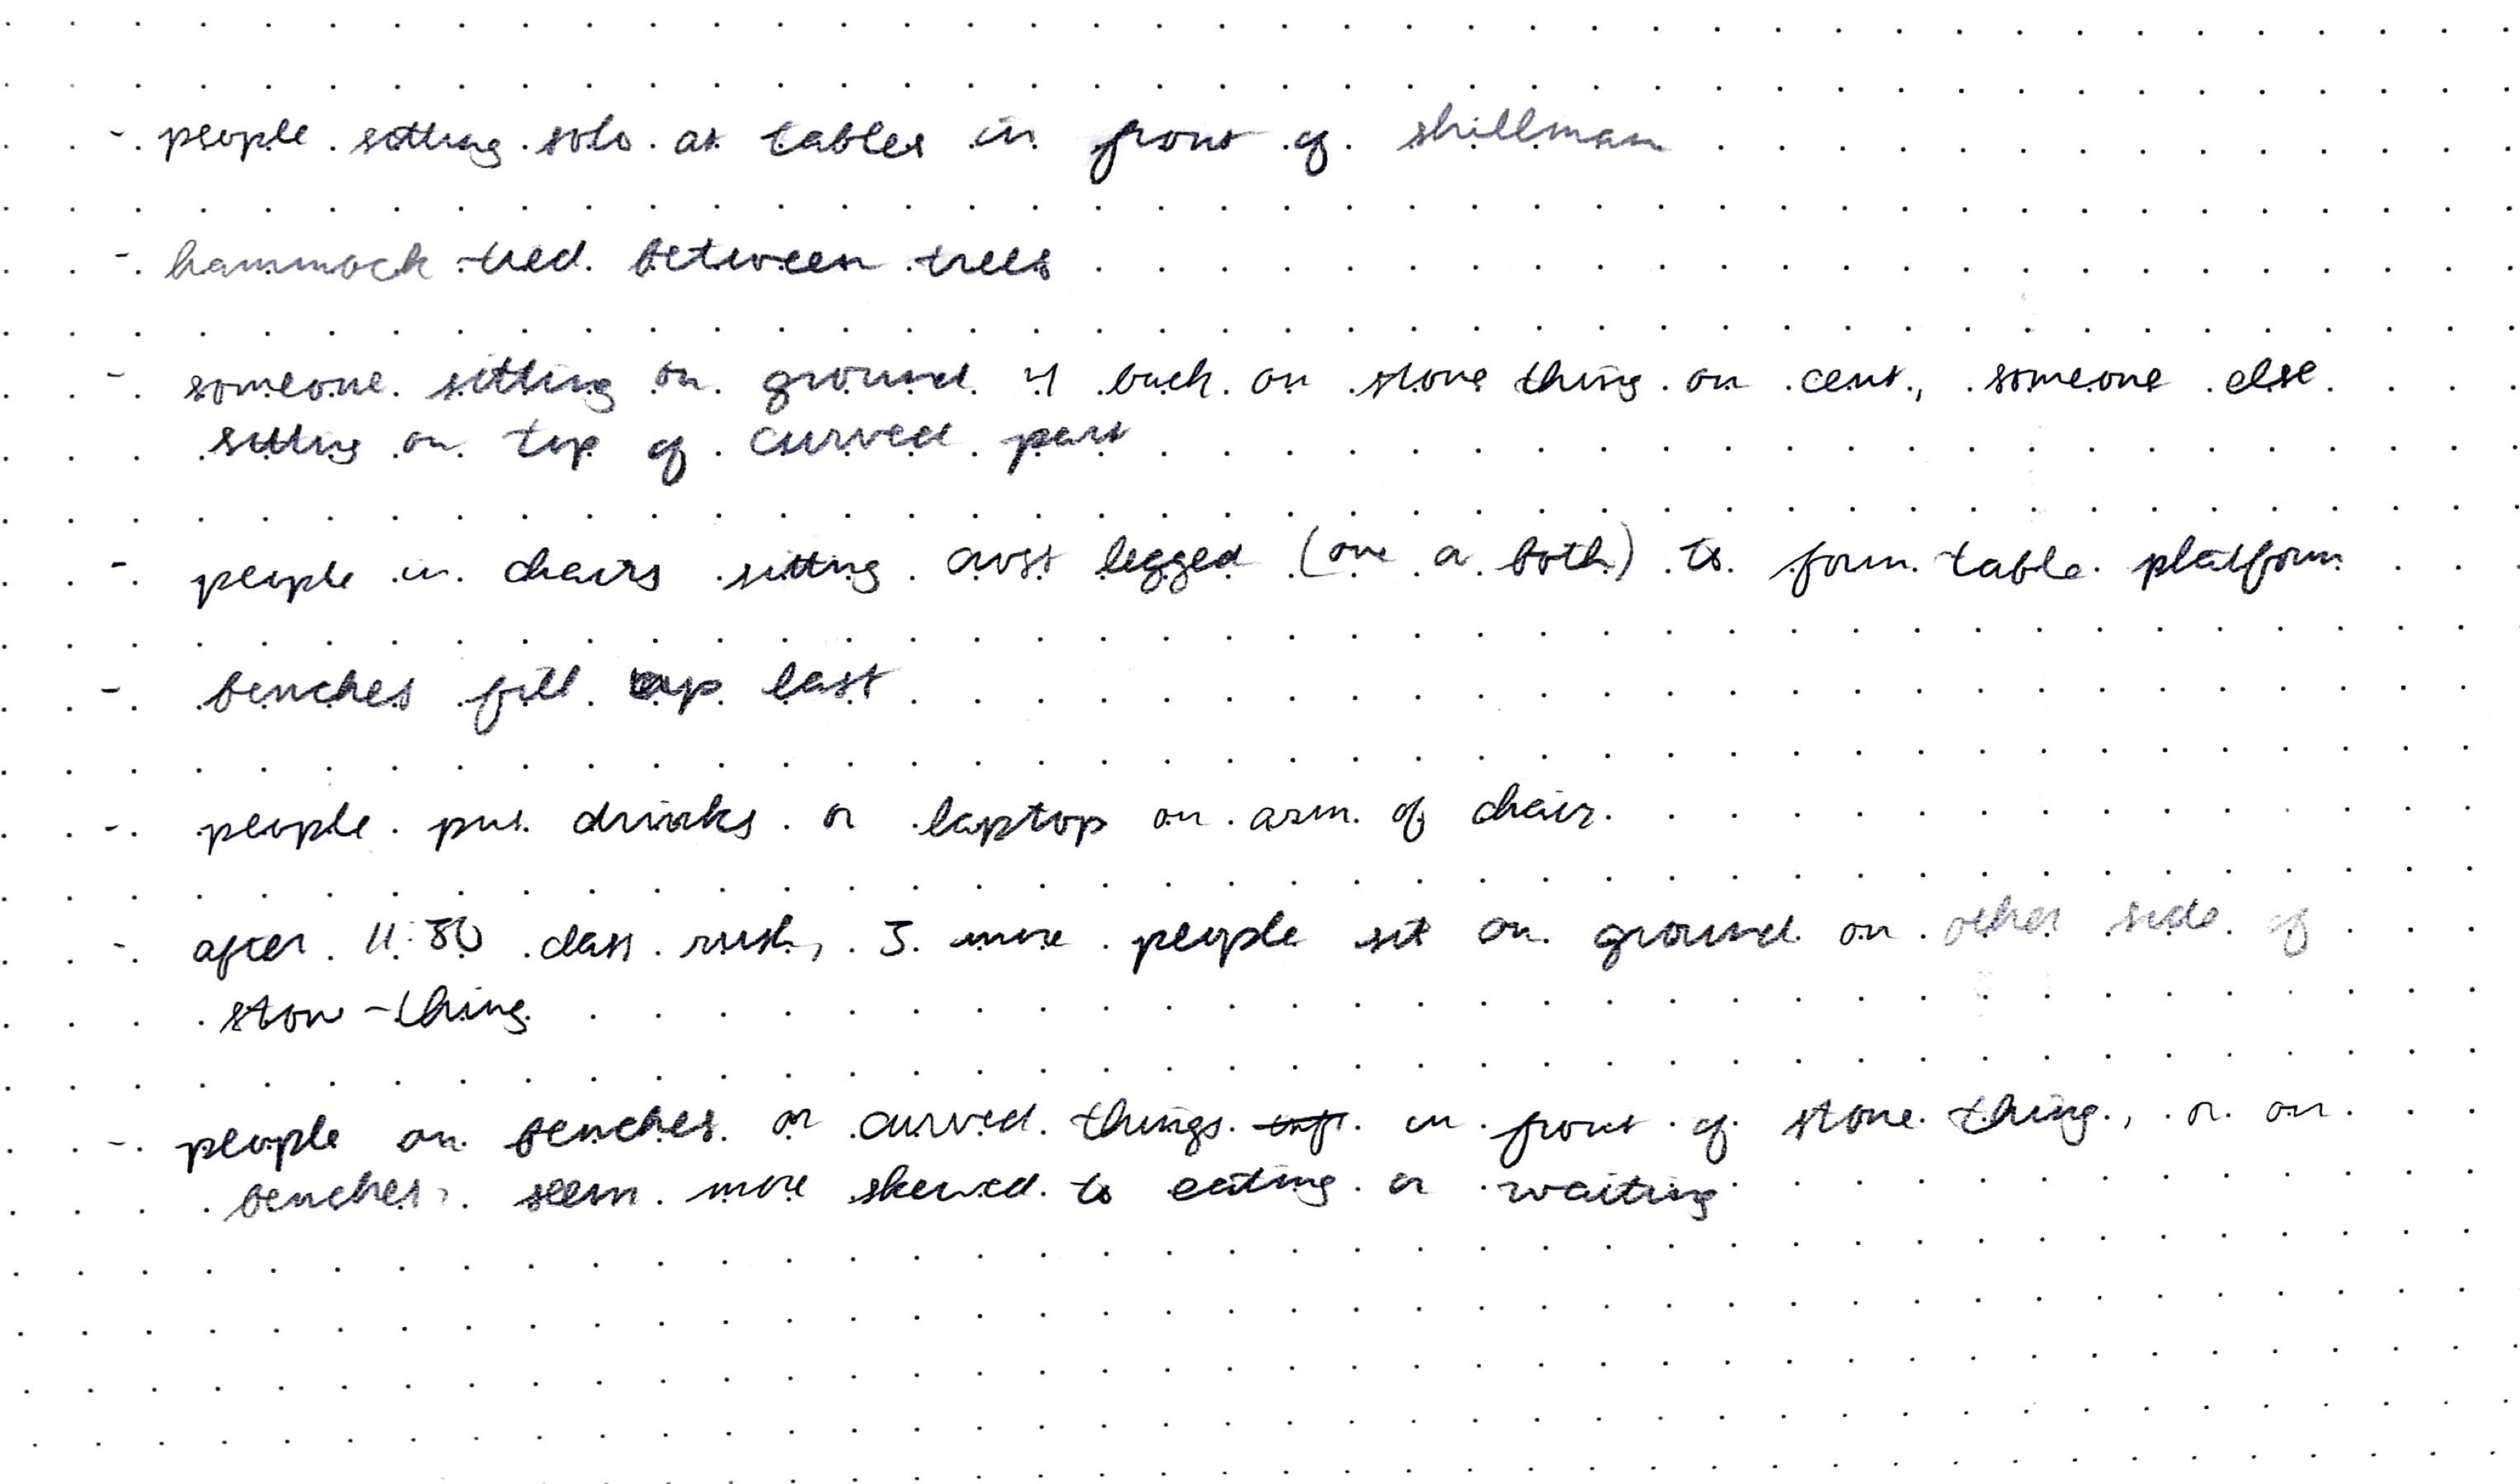 - people sitting solo at tables in front of shillman
- hammock tied between trees
- someone sitting on ground w/ back on stone thing on cent, someone else
sitting on top of curved part
- people in chairs sitting cross legged (one or both) to form table platform
- benches fill up last
- people put drinks or laptop on arm of chair
- after 11:30 class rush, 3 more people sit on ground on other side of
stone thing
- people on benches or curved things in front of stone thing, or on
benches, seem more skewed to eating or waiting